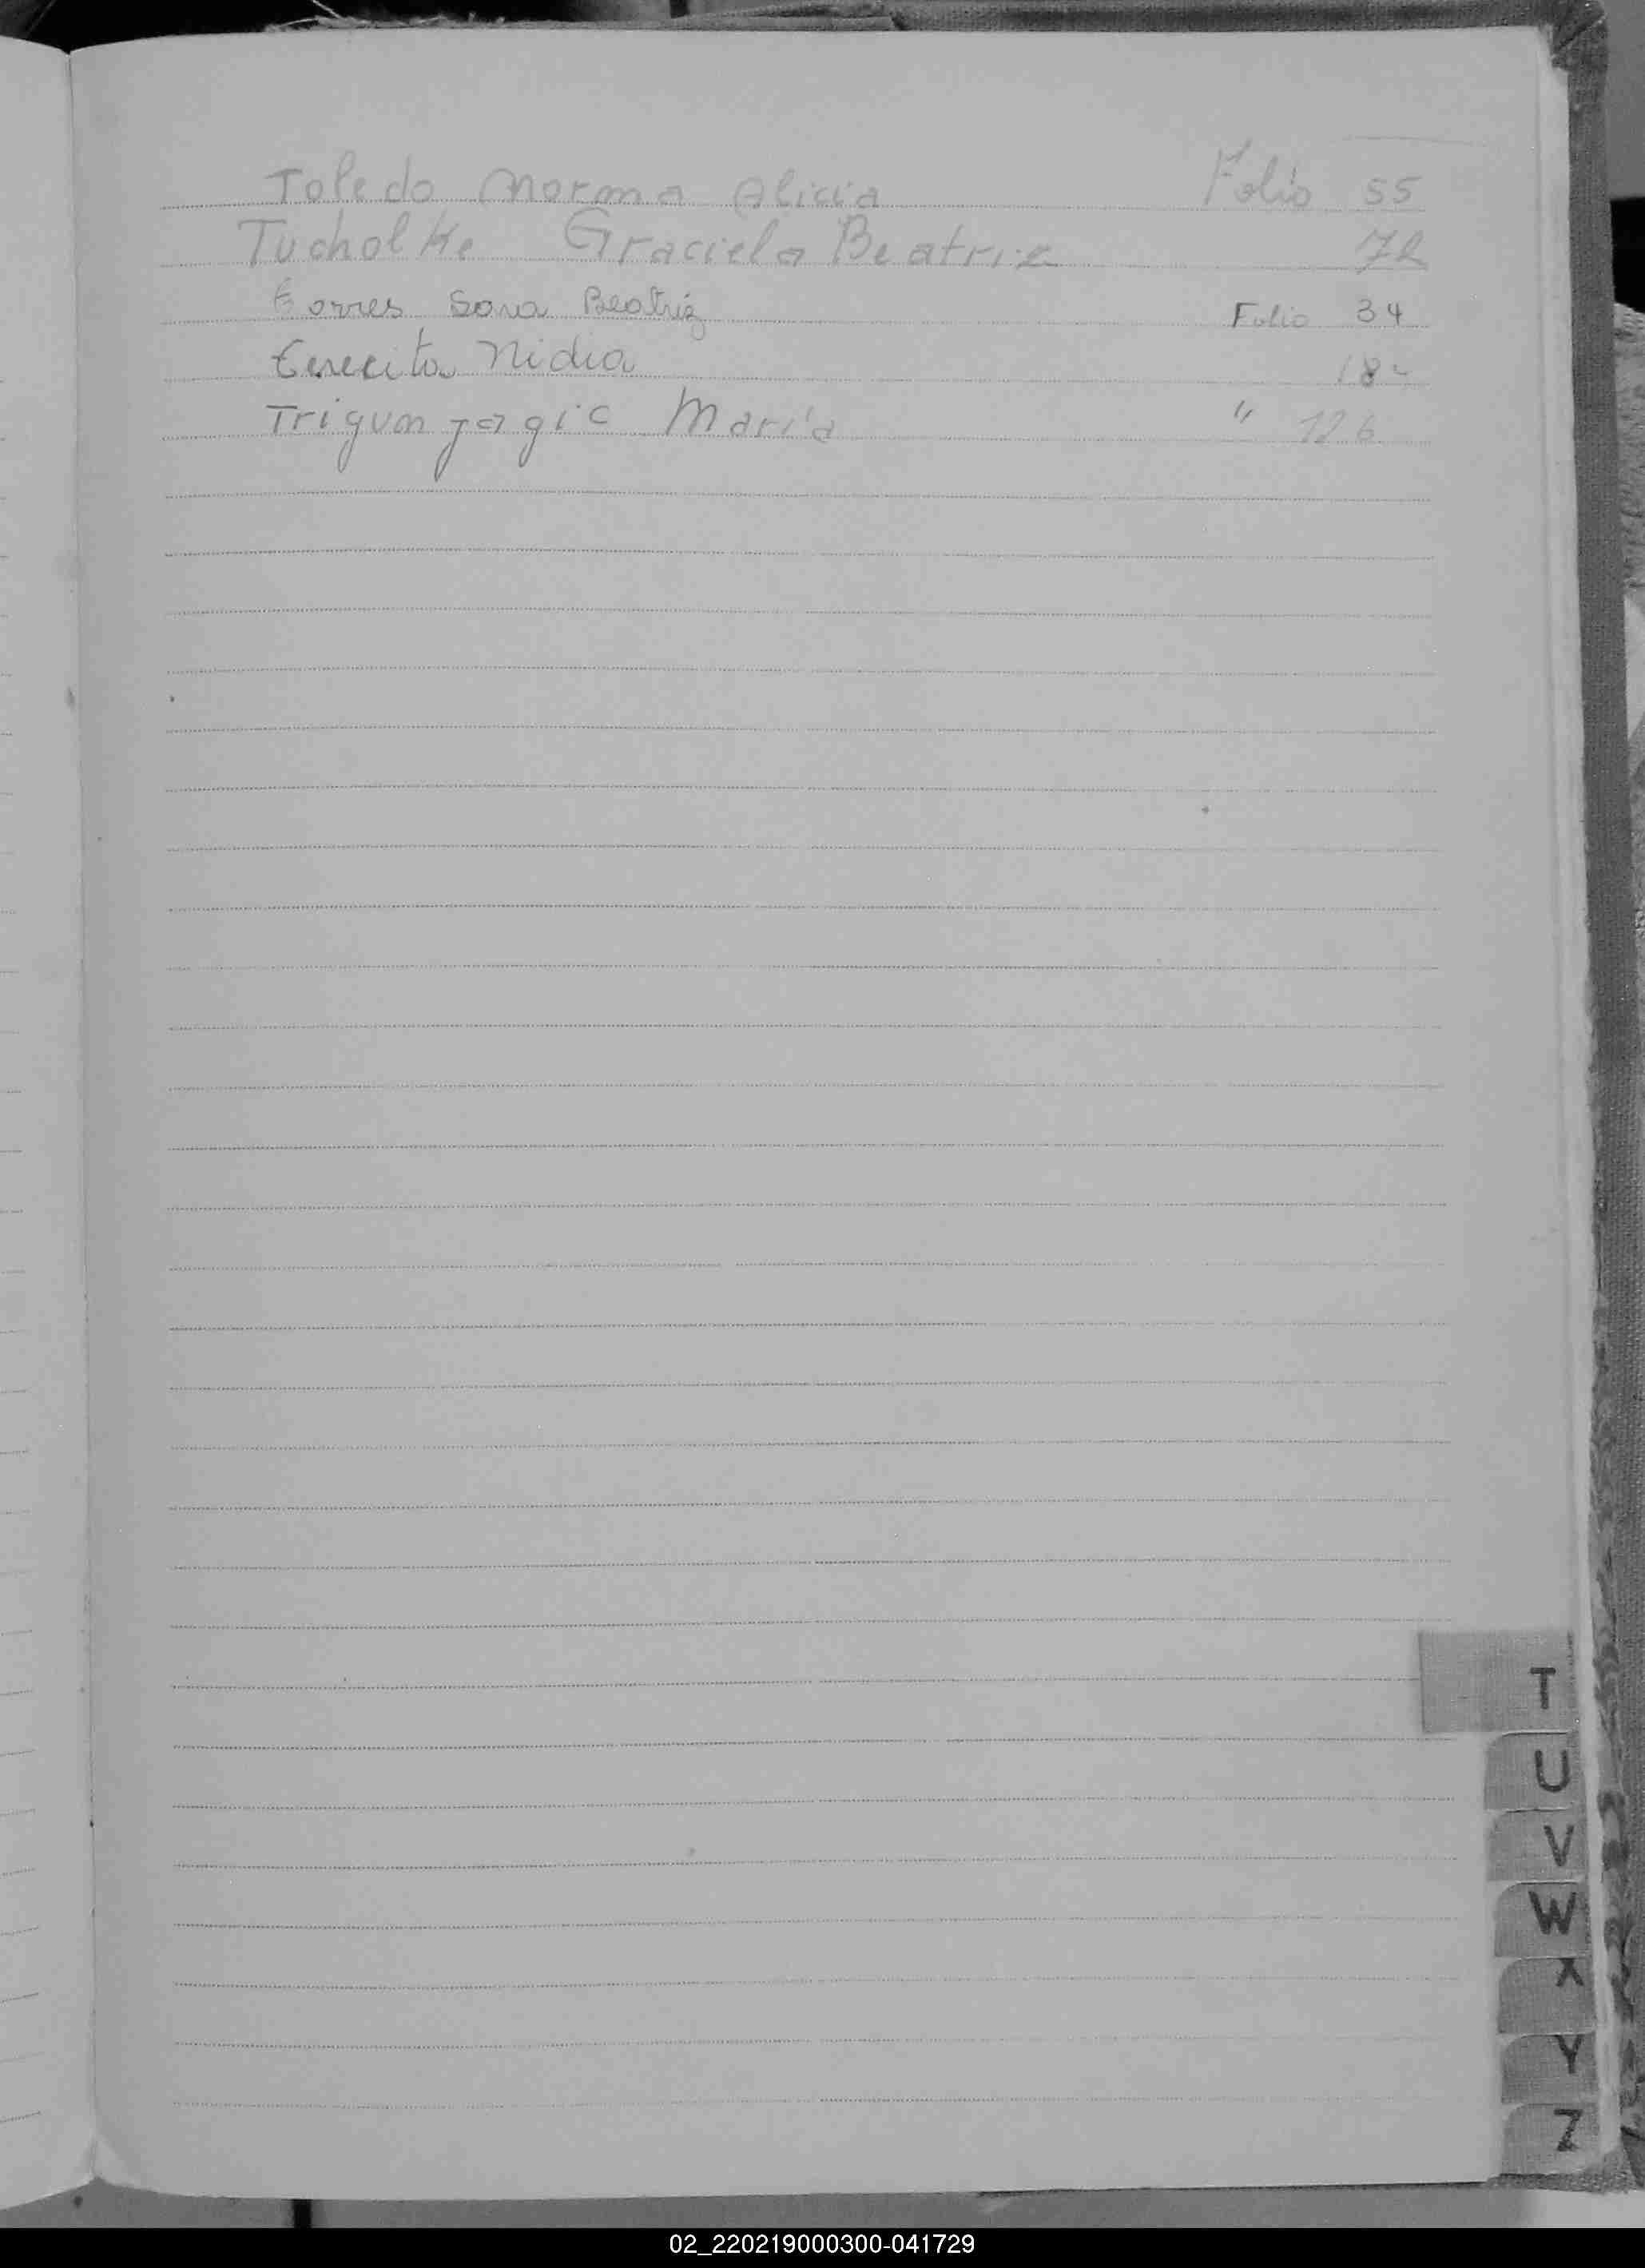 Toledo Norma Alicia Folio 55
Tucholke Graciela Beatriz 72
Torres Sara Beatriz Folio 34
Nidia 18
Trigumjagic María " 126
T
U
V
W
X
Y
Z
02_220219000300-041729